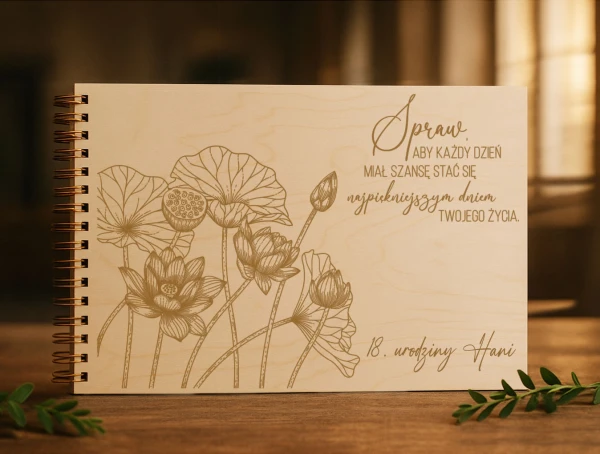 Spraw,
ABY KAŻDY DZIEŃ
MIAŁ SZANSĘ STAĆ SIĘ
najpiękniejszym dniem
TWOJEGO ŻYCIA.
18. urodziny Hani